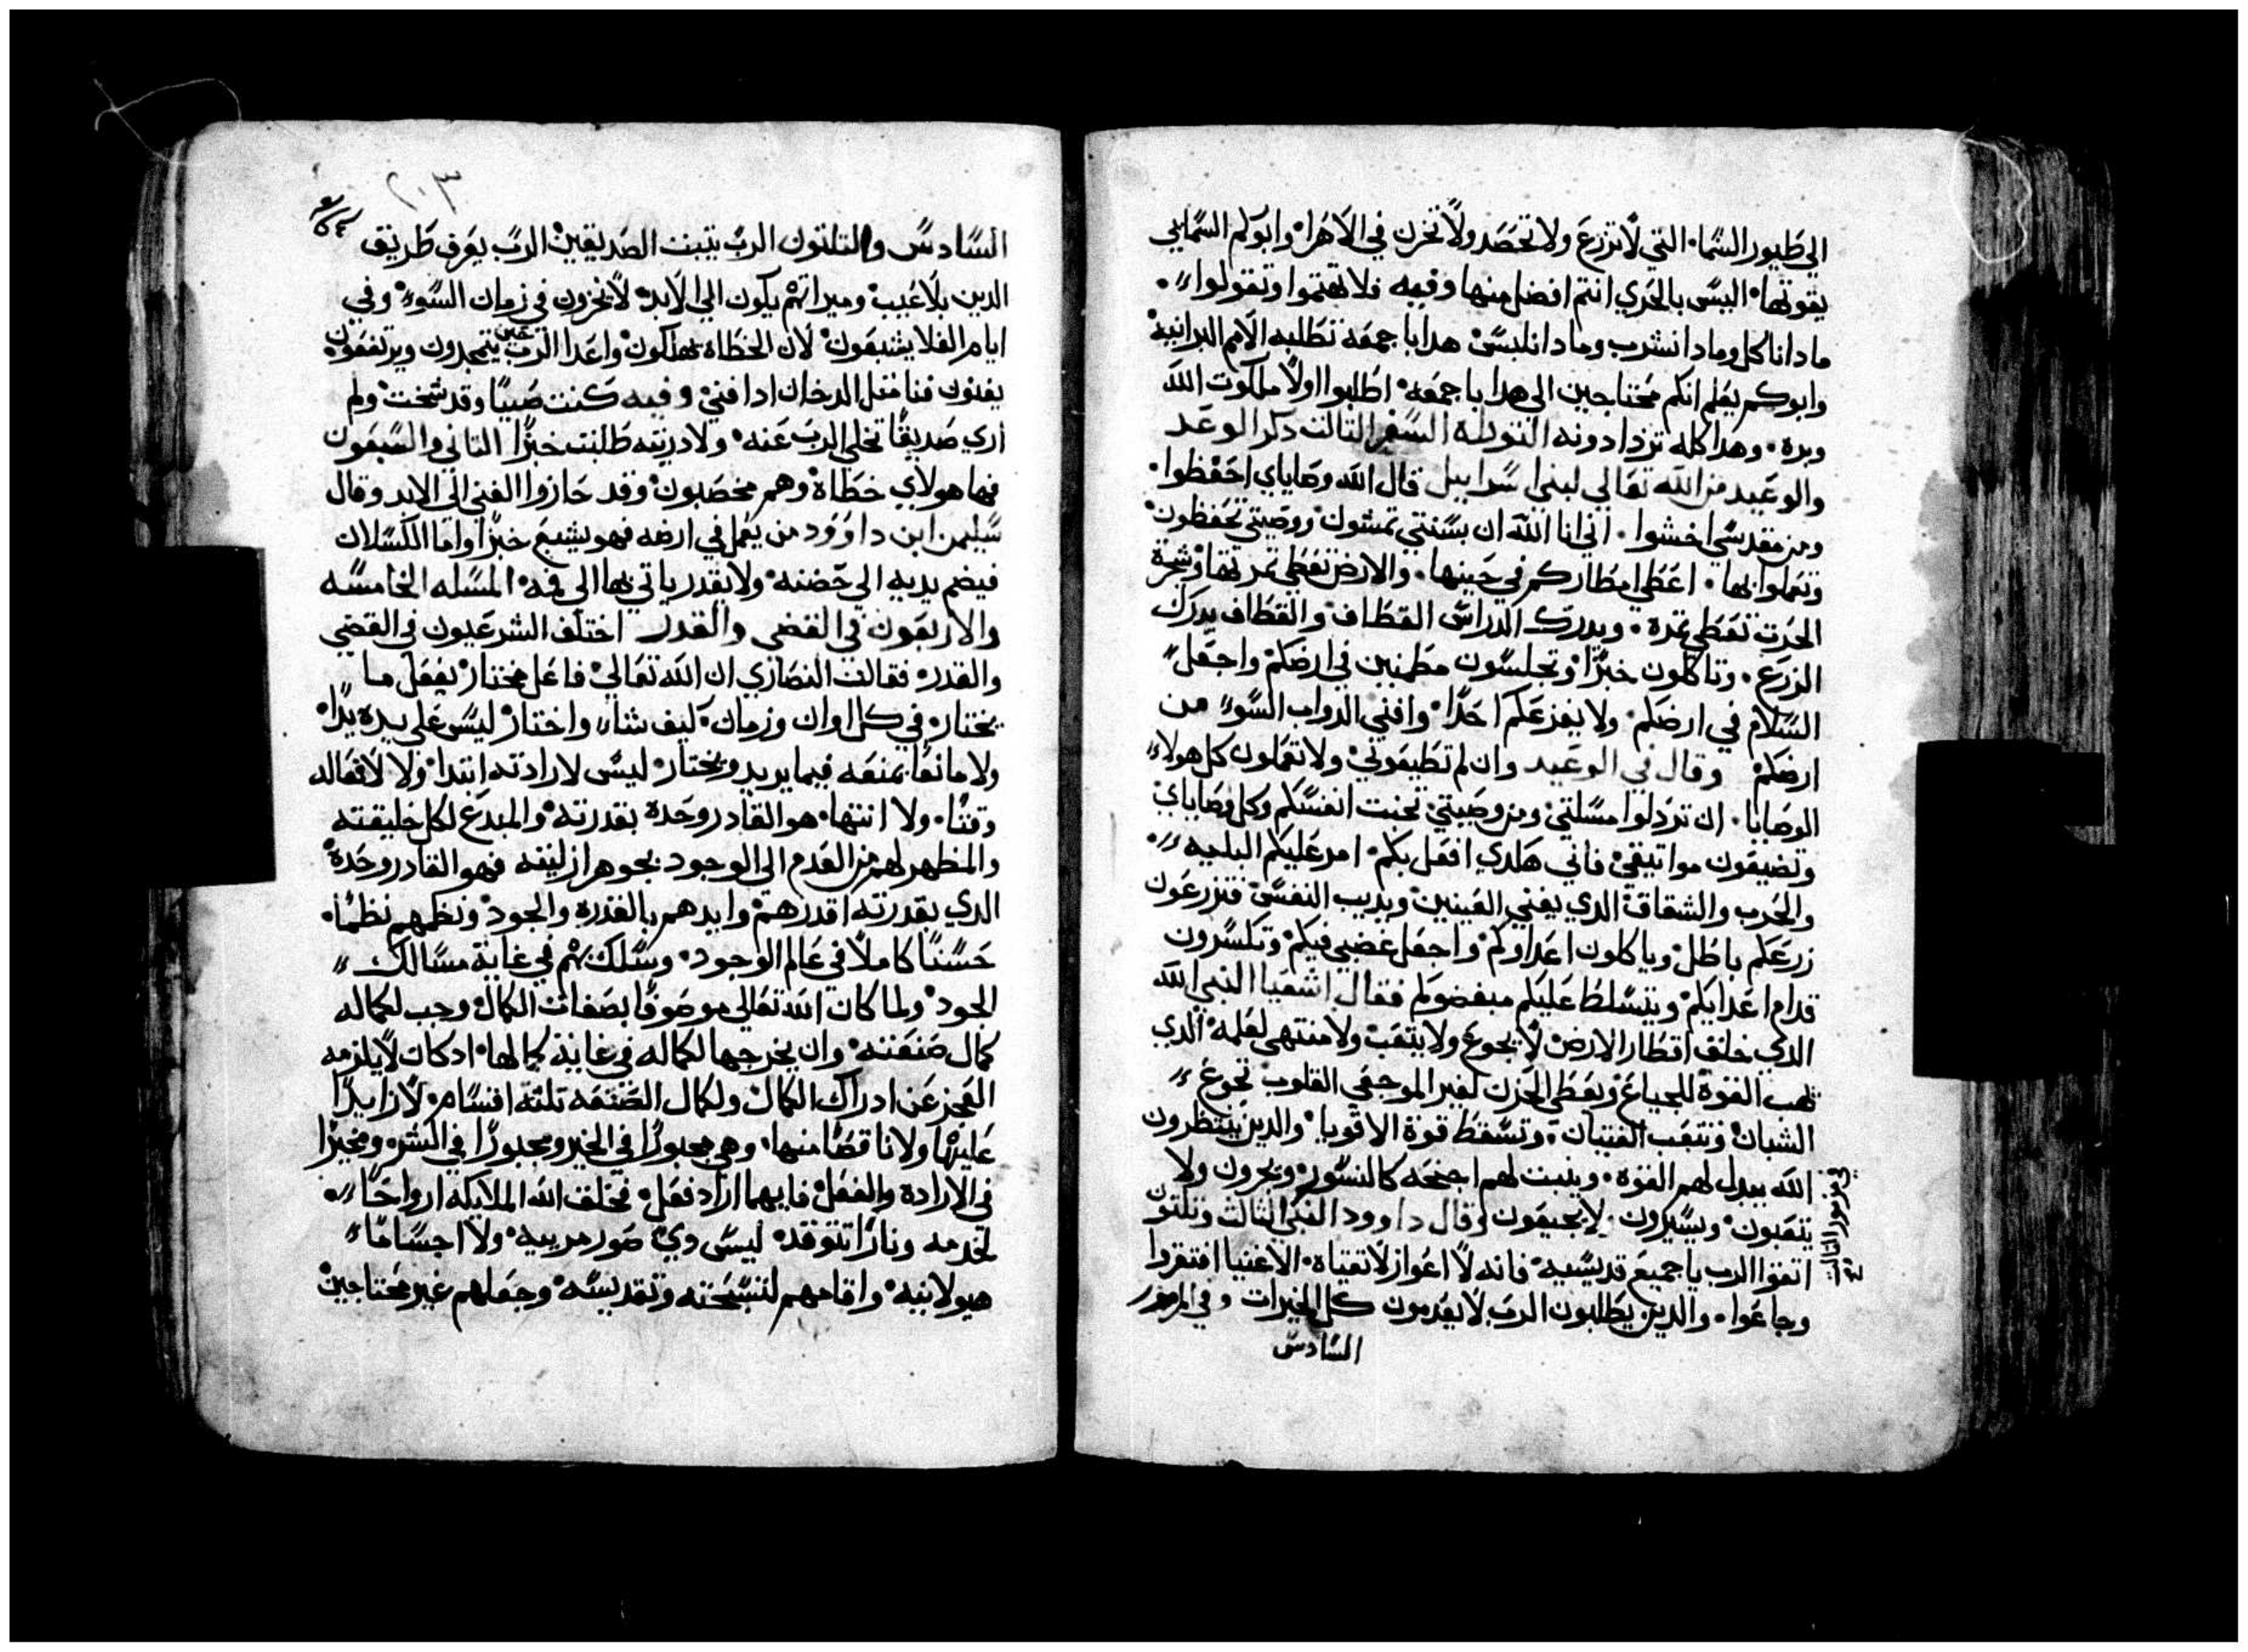 الي طيور السما، التي لا تزرع ولا تحصد ولا تخزن في الاهرا، وابوكم السمايي
يقوتها، اليس بالحري انتم افضل منها وفيه فلا تهتموا وتقولوا
مادا ناكل ومادا نشرب ومادا نلبس، هدا باجمعه تطلبه الامم البرانيه
وابوكم يعلم انكم محتاجين الي هدا باجمعه، اطلبوا اولا ملكوت الله
وبره، وهدا كله تزدادونه التوراه السفر التالت دكر الوعد
والوعيد من الله تعالي لبني اسراييل قال الله وصاياي احفظوا،
ومن مقدسي اخشوا، اني انا الله ان بسنتي تمشون ووصيتي تحفظون
وتعملوا بها، اعطي امطاركم في حينها، والارض تعطي تمرتها وشجرة
الحرت تعطي تمره، ويدرك الدراس القطاف والقطاف يدرك
الزرع، وتاكلون خبزا وتجلسون مطمنين في ارضكم واجعل
السلام في ارضكم، ولا يفزعكم احدا، وافني الدواب السو من
ارضكم وقال في الوعيد وان لم تطيعوني ولا تعملون كل هولاء
الوصايا، ان تردلوا مسلتي ومن وصيتي تحنت انفسكم وكل وصاياي
وتضيعون مواتيقي فاني هكدي افعل بكم، امر عليكم البليه
والجرب والشقاق الدي يعني العينين ويديب النفس فتزرعون
زرعكم باطل وياكلون اعداوكم واجعل غضبي فيكم وتكسرون
قدام اعدايكم ويتسلط عليكم مبغضوكم فقال اشعيا النبي الله
الدي خلق اقطار الارض لا يجوع ولا يتعب ولا منتهي لعلمه، الدي
يهب القوة للجياع ويعطي الحزن لغير الموجعي القلوب تجوع
الشبان وتتعب الفتيان، وتسقط قوة الاقويا، والدين ينتظرون
الله يبدل لهم القوه، وينبت لهم اجنحه كالنسور، ويجرون ولا
يتعبون، ويسيرون، لا يجيعون وقال داوود النبي التالت وتلتون
اتقوا الرب يا جميع قديسيه، فانه لا اعواز لاتقياه، الاغنيا افتقروا
وجاعوا، والدين يطلبون الرب لا يعدمون كل الخيرات وفي المزمور
السادس
السادس والتلتون الرب يتبت الصديقين الرب يعرف طريق
الدين بلا عيب وميراتهم يكون الي الابد، لا يخزون في زمان السوء وفي
ايام الغلا يشبعون، لان الخطاه يهلكون واعدا الرب حين يتمجدون ويرتفعون
يفنون فنا متل الدخان ادا فني وفيه كنت صبيا وقد شخت ولم
اري صديقا تخلي الرب عنه، ولا دريته طلبت خبزا التاني والسبعون
فها هولاي خطاة وهم مخصبون وقد حازوا الغني الي الابد وقال
سليمن ابن داوود من يعمل في ارضه فهو يشبع خبزا واما الكسلان
فيضم يديه الي حضنه، ولا يقدر ياتي بها الي فيه، المسله الخامسه
والاربعون في القضي والقدر اختلف الشرعيون في القضي
والقدر، فقالت النصاري ان الله تعالي فاعل مختار يفعل ما
يختار، في كل اوان وزمان، كيف شاء واختار ليس علي يده يدا،
ولا مانعا يمنعه فيما يريد ويختار، ليس لارادته ابتدا، ولا لافعاله
وقتا، ولا انتها، هو القادر وحده بقدرته والمبدع لكل خليقته
والمظهر لهم من العدم الي الوجود بجوهر ازليته فهو القادر وحده
الدي بقدرته اقدرهم وايدهم بالقدره والجود ونظمهم نظما،
حسنا كاملا في عالم الوجود، وسلك بهم في غاية مسالك
الجود ولما كان الله تعالي موصوفا بصفات الكمال وجب لكماله
كمال صنعته، وان يخرجها لكماله في غاية كمالها، اد كان لا يلزمه
العجز عن ادراك الكمال ولكمال الصنعه تلته اقسام، لا زايدا
عليها ولا ناقصا منها، وهي مجبورا في الخير ومجبورا في الشر، ومخيرا
في الارادة والفعل فايهما اراد فعل، فخلق الله الملايكه ارواحا
لخدمه ونارا تتوقد، ليس دي صور مرييه، ولا اجساما
هيولانيه، واقامهم لتسبحته وتقديسه، وجعلهم غير محتاجين